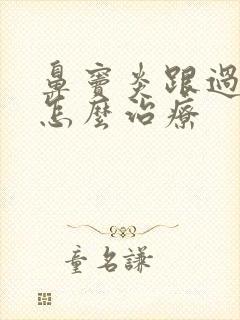 鼻竇炎跟過
怎麼治療
童名謙